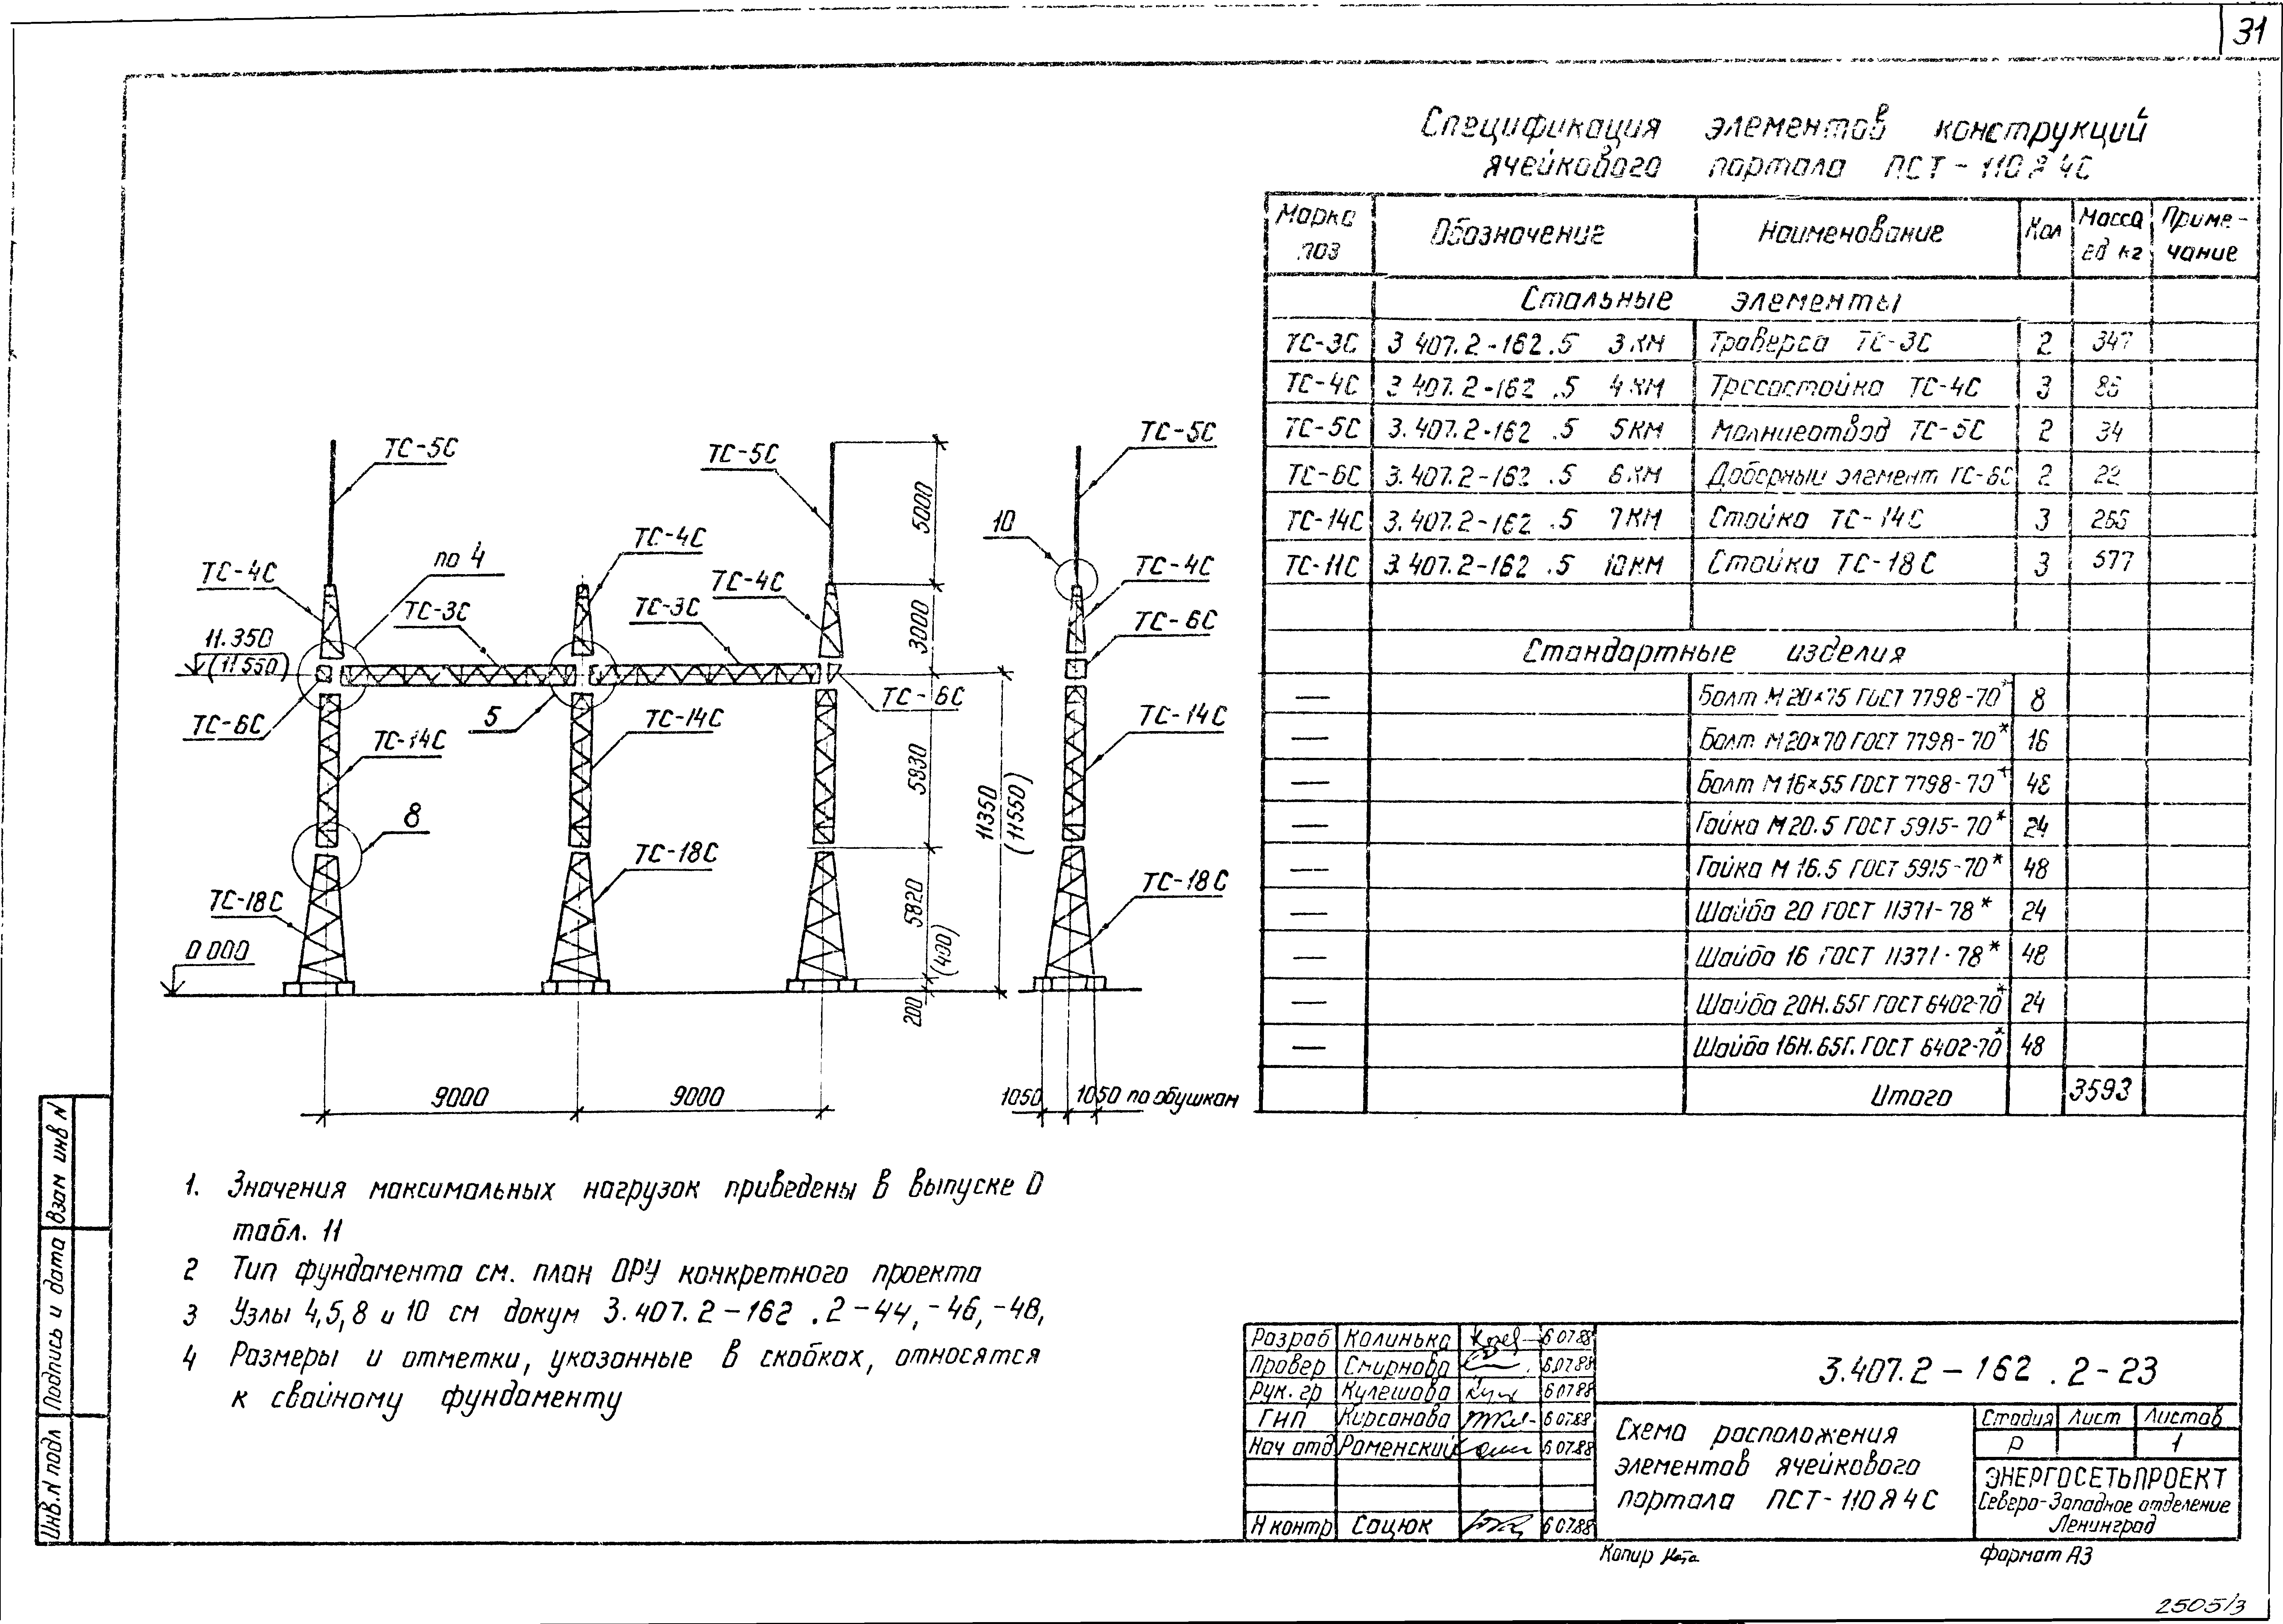 31
Спецификация элементов конструкций
ячейкового портала ПСТ-110Я4С
Марка поз | Обозначение | Наименование | Кол | Масса ед кг | Приме-чание
Стальные элементы
ТС-3С 3 407.2-162.5 3КМ Траверса ТС-3С 2 347
ТС-4С 3 407.2-162 .5 4КМ Тросостойка ТС-4С 3
ТС-5С 3.407.2-162 .5 5КМ Молниеотвод ТС-5С 2 34
ТС-6С 3.407.2-162 .5 6КМ Доборный элемент ТС-6С 2
ТС-14С 3.407.2-162 .5 7КМ Стойка ТС-14С 3
ТС-11С 3.407.2-162 .5 10КМ Стойка ТС-18С 3 577
Стандартные изделия
— Болт М20×75 ГОСТ 7798-70* 8
— Болт М20×70 ГОСТ 7798-70* 16
— Болт М16×55 ГОСТ 7798-70* 48
— Гайка М20.5 ГОСТ 5915-70* 24
— Гайка М16.5 ГОСТ 5915-70* 48
— Шайба 20 ГОСТ 11371-78* 24
— Шайба 16 ГОСТ 11371-78* 48
— Шайба 20Н.65Г ГОСТ 6402-70* 24
— Шайба 16Н.65Г. ГОСТ 6402-70* 48
Итого 3593
ТС-5С
ТС-5С
ТС-5С
5000
10
по 4
ТС-4С
ТС-4С
ТС-4С
ТС-4С
ТС-3С
ТС-3С
3000
ТС-6С
11.350
(11550)
ТС-6С
5
ТС-6С
ТС-14С
ТС-14С
ТС-14С
5930
11350
(11550)
8
ТС-18С
ТС-18С
ТС-18С
5820
(400)
0 000
200
9000
9000
1050
1050 по обушкам
1. Значения максимальных нагрузок приведены в выпуске 0
табл. 11
2 Тип фундамента см. план ОРУ конкретного проекта
3 Узлы 4,5,8 и 10 см докум 3.407.2-162 .2-44,-46,-48,
4 Размеры и отметки, указанные в скобках, относятся
к свайному фундаменту
Взам инв N
Подпись и дата
Инв.N подл
Разраб Калинька 6 07.88
Провер Смирнова 6.07.88
Рук. гр Кулешова 6 07 88
ГИП Кирсанова 6 07.88
Нач отд Роменский 6 07.88
Н контр Сацюк 6 07.88
3.407.2-162 .2-23
Схема расположения
элементов ячейкового
портала ПСТ-110Я4С
Стадия Лист Листов
Р 1
ЭНЕРГОСЕТЬПРОЕКТ
Северо-Западное отделение
Ленинград
Копир
формат А3
2505/3